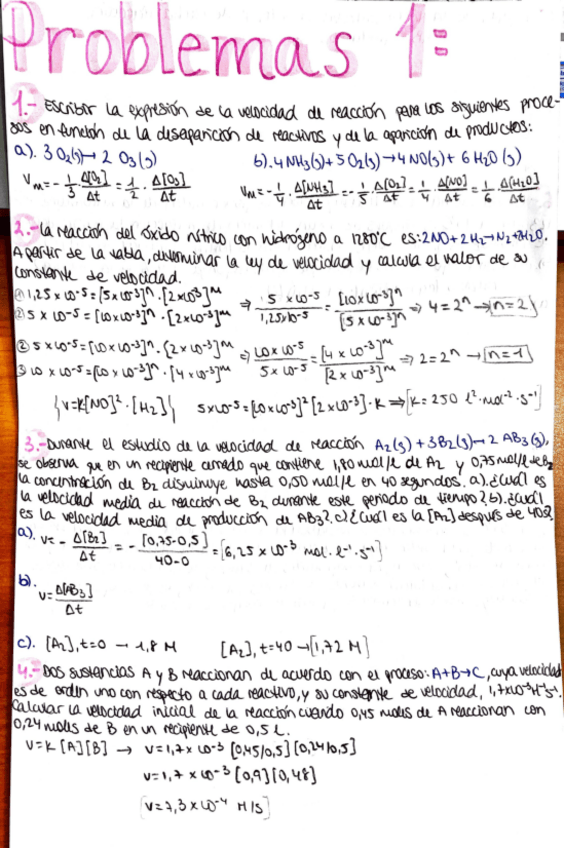 Problemas 1:
1.- Escribir la expresión de la velocidad de reacción para los siguientes proce-
sos en función de la desaparición de reactivos y de la aparición de productos:
a). 3 O₂(g) → 2 O₃(g) b). 4 NH₃(g) + 5 O₂(g) → 4 NO(g) + 6 H₂O (g)
Vm = - 1/3 Δ[O₂]/Δt = 1/2 · Δ[O₃]/Δt Vm = - 1/4 · Δ[NH₃]/Δt = - 1/5 Δ[O₂]/Δt = 1/4 · Δ[NO]/Δt = 1/6 Δ[H₂O]/Δt
2.- La reacción del óxido nítrico con hidrógeno a 1280°C es: 2NO + 2H₂ → N₂ + 2H₂O.
A partir de la tabla, determinar la ley de velocidad y calcula el valor de su
constante de velocidad.
① 1,25 x 10⁻⁵ = [5x10⁻³]ⁿ · [2x10⁻³]ᵐ ⇒ 5 x 10⁻⁵ / 1,25x10⁻⁵ = [10x10⁻³]ⁿ / [5 x 10⁻³]ⁿ ⇒ 4 = 2ⁿ → n = 2
② 5 x 10⁻⁵ = [10x10⁻³]ⁿ · [2x10⁻³]ᵐ
② 5 x 10⁻⁵ = [10x10⁻³]ⁿ · [2x10⁻³]ᵐ ⇒ 10x10⁻⁵ / 5 x 10⁻⁵ = [4 x 10⁻³]ᵐ / [2 x 10⁻³]ᵐ ⇒ 2 = 2ⁿ → n = 1
③ 10 x 10⁻⁵ = [10 x 10⁻³]ⁿ · [4 x 10⁻³]ᵐ
V = K[NO]² · [H₂] 5x10⁻⁵ = [10x10⁻³]² [2x10⁻³] · K ⇒ [K = 250 l² · mol⁻² · s⁻¹]
3.- Durante el estudio de la velocidad de reacción A₂(g) + 3B₂(g) → 2 AB₃(g),
se observa que en un recipiente cerrado que contiene 1,80 mol/l de A₂ y 0,75 mol/l de B₂
la concentración de B₂ disminuye hasta 0,50 mol/l en 40 segundos. a). ¿Cuál es
la velocidad media de reacción de B₂ durante este periodo de tiempo? b). ¿Cuál
es la velocidad media de producción de AB₃?. c) ¿Cuál es la [A₂] después de 40s?
a). v = - Δ[B₂]/Δt = - [0,75-0,5]/40-0 = [6,25 x 10⁻³ mol · l⁻¹ · s⁻¹]
b). v = Δ[AB₃]/Δt
c). [A₂], t=0 → 1,8 M [A₂], t=40 → [1,72 M]
4.- Dos sustancias A y B reaccionan de acuerdo con el proceso: A+B→C, cuya velocidad
es de orden uno con respecto a cada reactivo, y su constante de velocidad, 1,7x10⁻³M⁻¹s⁻¹.
Calcular la velocidad inicial de la reacción cuando 0,45 moles de A reaccionan con
0,24 moles de B en un recipiente de 0,5 l.
V = K [A][B] → V = 1,7 x 10⁻³ [0,45/0,5] [0,24/0,5]
V = 1,7 x 10⁻³ [0,9] [0,48]
[V = 7,3 x 10⁻⁴ M/s]